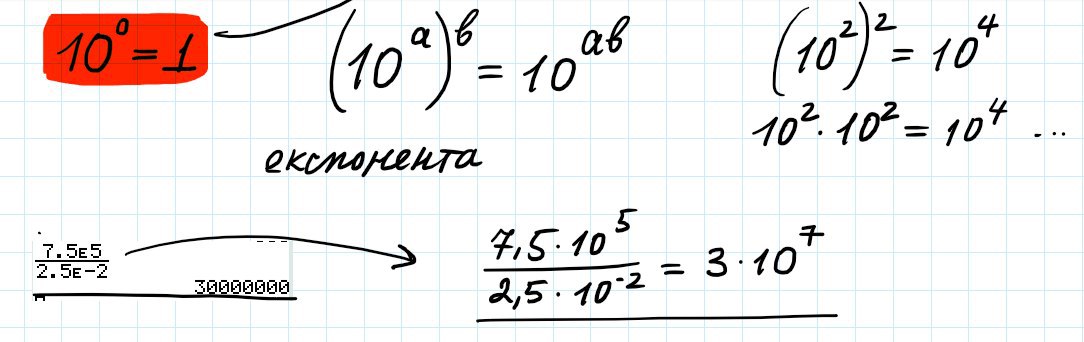 10⁰ = 1
(10ᵃ)ᵇ = 10ᵃᵇ
(10²)² = 10⁴
10² · 10² = 10⁴ ...
експонента
7.5E5
2.5E-2
30000000
7,5 · 10⁵
2,5 · 10⁻² = 3 · 10⁷